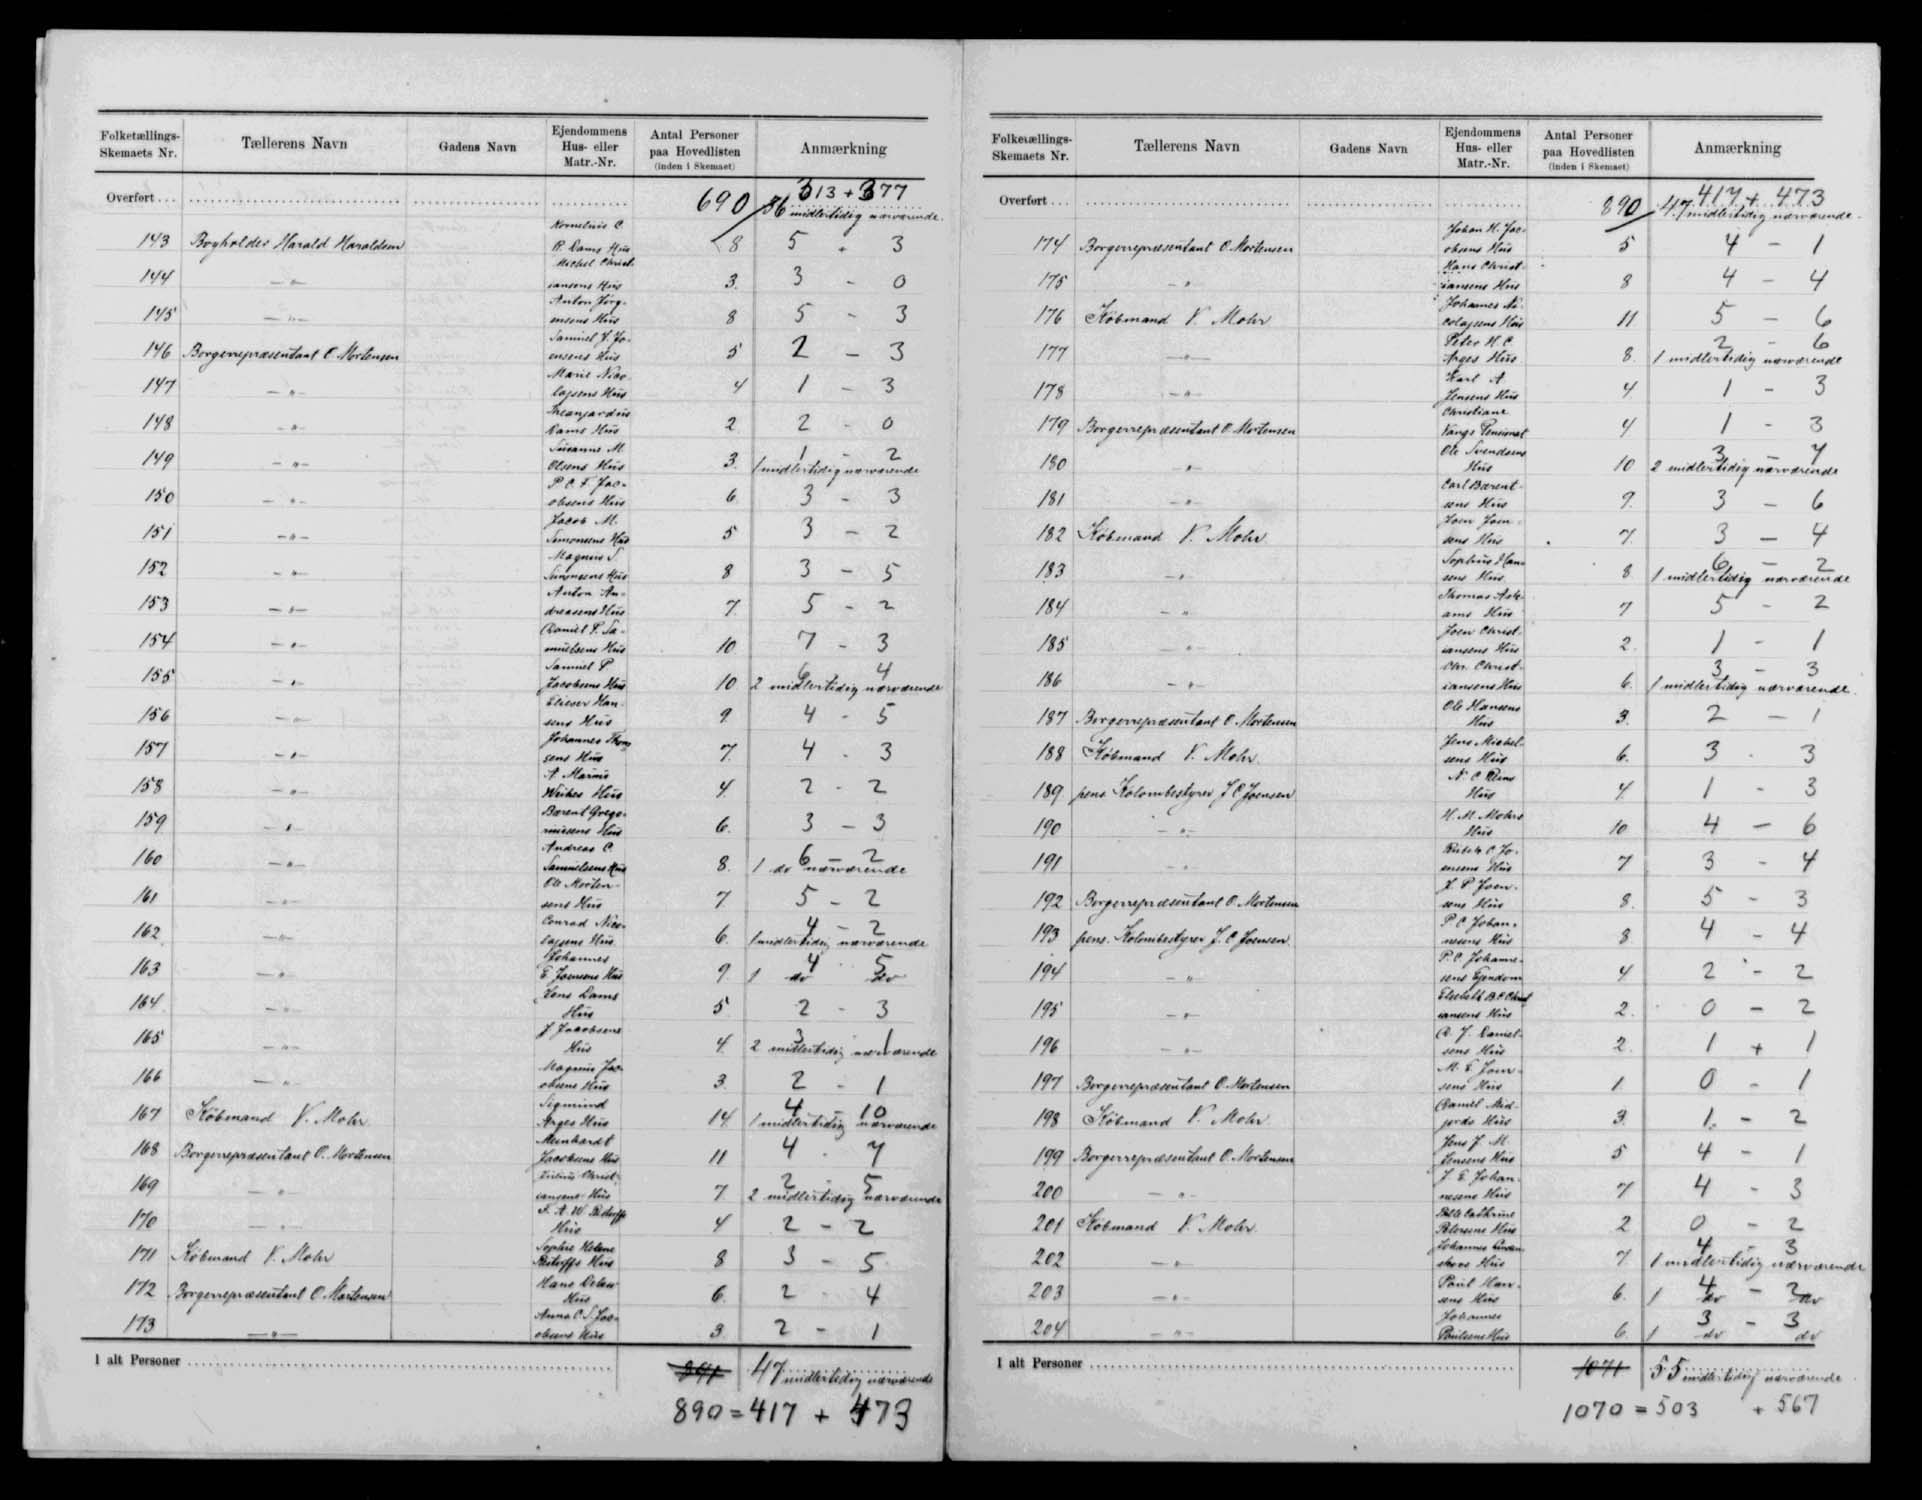 Folketællings-Skemaets Nr. Tællerens Navn Gadens Navn Ejendommens Hus- eller Matr.-Nr. Antal Personer paa Hovedlisten (inden i Skemaet) Anmærkning
Overført 690 313 + 377
36 midlertidig nærværende.
Kornelius C.
143 Bogholder Harald Haraldsen P. Dams Hus 8 5 + 3
Michel Christ-
144 —"— iansens Hus 3. 3 - 0
Anton Jörg-
145 —"— ensens Hus 8 5 - 3
Samuel J. Jo-
146 Borgerrepræsentant O. Mortensen ensens Hus 5 2 - 3
Marie Nico-
147 —"— lajsens Hus 4 1 - 3
148 —"— Dams Hus 2 2 - 0
Susanne M. 1 - 2
149 —"— Olsens Hus 3. 1 midlertidig nærværende
P. C. F. Jac-
150 —"— obsens Hus 6 3 - 3
Jacob M.
151 —"— Simonsens Hus 5 3 - 2
Magnus S.
152 —"— Simonsens Hus 8 3 - 5
Anton An-
153 —"— dreasens Hus 7. 5 - 2
Daniel P. Sa-
154 —"— muelsens Hus 10 7 - 3
Samuel P 6 4
155 —"— Jacobsens Hus 10 2 midlertidig nærværende
Elieser Han-
156 —"— sens Hus 9. 4 - 5
Johannes Thom
157 —"— sens Hus 7. 4 - 3
158 —"— Weihes Hus 4. 2 - 2
Barent Grego-
159 —"— riusens Hus 6. 3 - 3
Andreas C. 6 - 2
160 —"— Samuelsens Hus 8. 1 do nærværende
Ole Morten-
161 —"— sens Hus 7. 5 - 2
Conrad Nico- 4 - 2
162 —"— lajsens Hus 6. 1 midlertidig nærværende
Johannes 4 5
163 —"— E Joensens Hus 9 1 do do
Jens Dams
164 —"— Hus 5. 2 - 3
J. Jacobsens 3 1
165 —"— Hus 4. 2 midlertidig nærværende
Magnus Jac-
166 —"— obsens Hus 3. 2 - 1
Sigmund 4 - 10
167 Købmand V. Mohr Arges Hus 14. 1 midlertidig nærværende
Meinhardt
168 Borgerrepræsentant O. Mortensen Jacobsens Hus 11 4 - 7
Julius Christ- 2 - 5
169 —"— iansens Hus 7 2 midlertidig nærværende
170 —"— Hus 4 2 - 2
Sophie Helene
171 Købmand V. Mohr Restorffs Hus 8 3 - 5
172 Borgerrepræsentant O Mortensen Hus 6. 2 - 4
Anna C. S. Jac-
173 —"— obsens Hus 3 2 - 1
I alt Personer 891 47 midlertidig nærværende
890 = 417 + 473
Folketællings-Skemaets Nr. Tællerens Navn Gadens Navn Ejendommens Hus- eller Matr.-Nr. Antal Personer paa Hovedlisten (inden i Skemaet) Anmærkning
Overført 890 417 + 473
47 midlertidig nærværende.
Johan H. Jac-
174 Borgerrepræsentant O. Mortensen obsens Hus 5 4 - 1
Hans Christ-
175 —"— iansens Hus 8 4 - 4
Johannes Ni-
176 Købmand V. Mohr colajsens Hus 11 5 - 6
Peter H. C. 2 - 6
177 —"— Arges Hus 8. 1 midlertidig nærværende
Karl A
178 —"— Jensens Hus 4 1 - 3
Christiane
179 Borgerrepræsentant O. Mortensen Vangs Pensionat 4 1 - 3
Ole Svendsens 3 - 7
180 —"— Hus 10 2 midlertidig nærværende
Carl Barent-
181 —"— sens Hus 9. 3 - 6
Joen Joen-
182 Købmand V. Mohr sens Hus 7. 3 - 4
Sophus Han- 6 - 2
183 —"— sens Hus 8 1 midlertidig nærværende
184 —"— ams Hus 7 5 - 2
Joen Christ-
185 —"— iansens Hus 2. 1 - 1
Chr. Christ- 3 - 3
186 —"— iansens Hus 6. 1 midlertidig nærværende.
Ole Hansens
187 Borgerrepræsentant O. Mortensen Hus 3. 2 - 1
Jens Michel-
188 Købmand V. Mohr. sens Hus 6. 3 - 3
189 pens Kolonibestyrer J C Joensen Hus 4. 1 - 3
H. M. Mohrs
190 —"— Hus 10 4 - 6
191 —"— ensens Hus 7 3 - 4
J. P. Joen-
192 Borgerrepræsentant O. Mortensen sens Hus 8. 5 - 3
P. C. Johan-
193 pens. Kolonibestyrer J. C Joensen. nesens Hus 8 4 - 4
P. C. Johanne-
194 —"— sens Ejendom 4 2 - 2
195 —"— iansens Hus 2. 0 - 2
D. J. Daniel-
196 —"— sens Hus 2. 1 + 1
M. E. Joen-
197 Borgerrepræsentant O. Mortensen sens Hus 1. 0 - 1
Daniel Mid-
198 Købmand V. Mohr. jords Hus 3. 1. - 2
Jens J. M.
199 Borgerrepræsentant O. Mortensen Jensens Hus 5 4 - 1
J. E. Johan-
200 —"— nesens Hus 7 4 - 3
201 Købmand V. Mohr. Petersens Hus 2 0 - 2
4 - 3
202 —"— Hus 7 1 midlertidig nærværende
Poul Han- 4 - 2
203 —"— sens Hus 6. 1 do do
Johannes 3 - 3
204 —"— Poulsens Hus 6. 1 do do
I alt Personer 1071 55 midlertidig nærværende.
1070 = 503 + 567